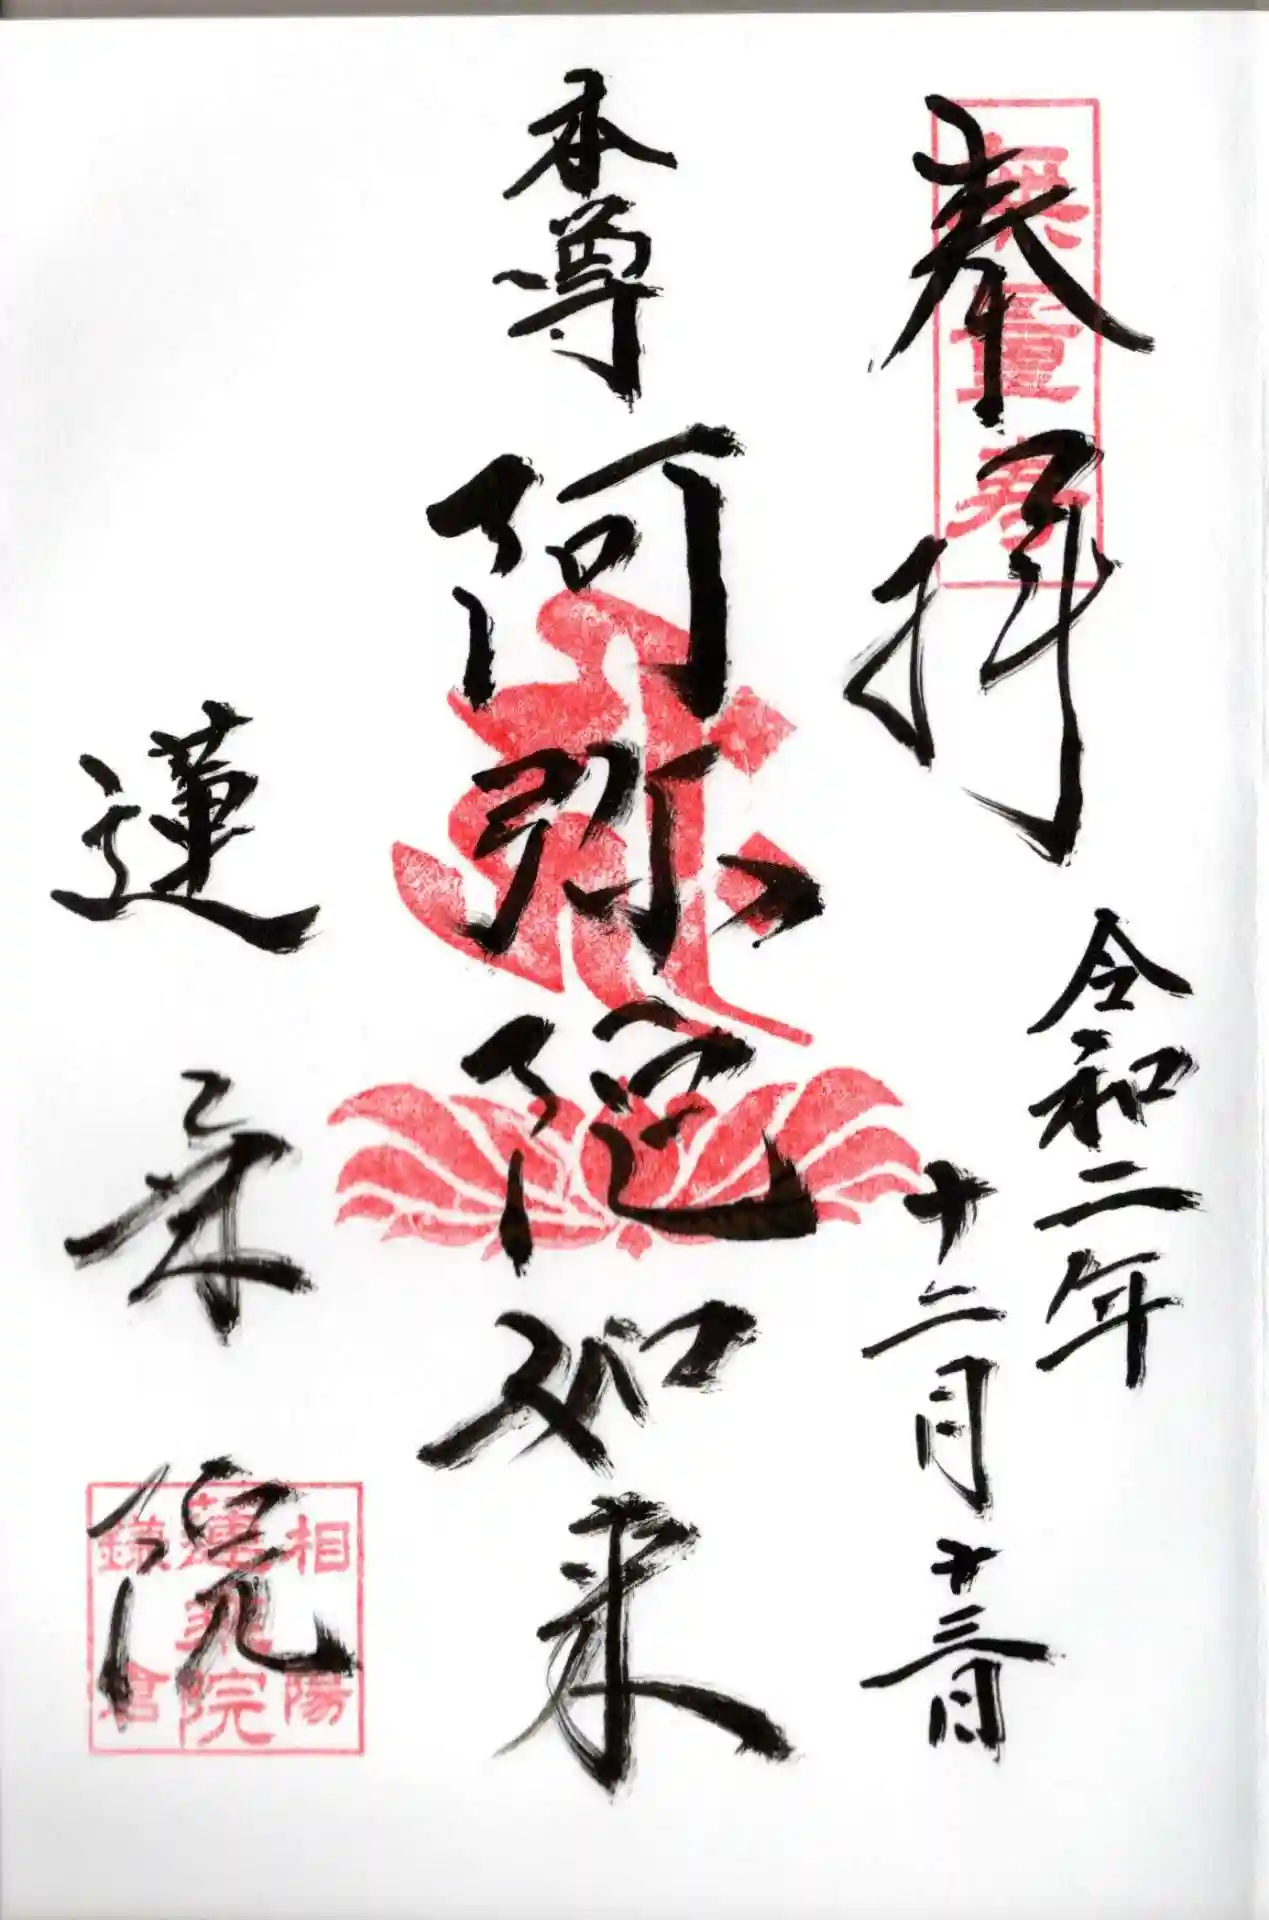 奉拝
無量寿
令和二年
十二月十三日
本尊
阿弥陀如来
蓮乗院
相陽
蓮乗院
鎌倉